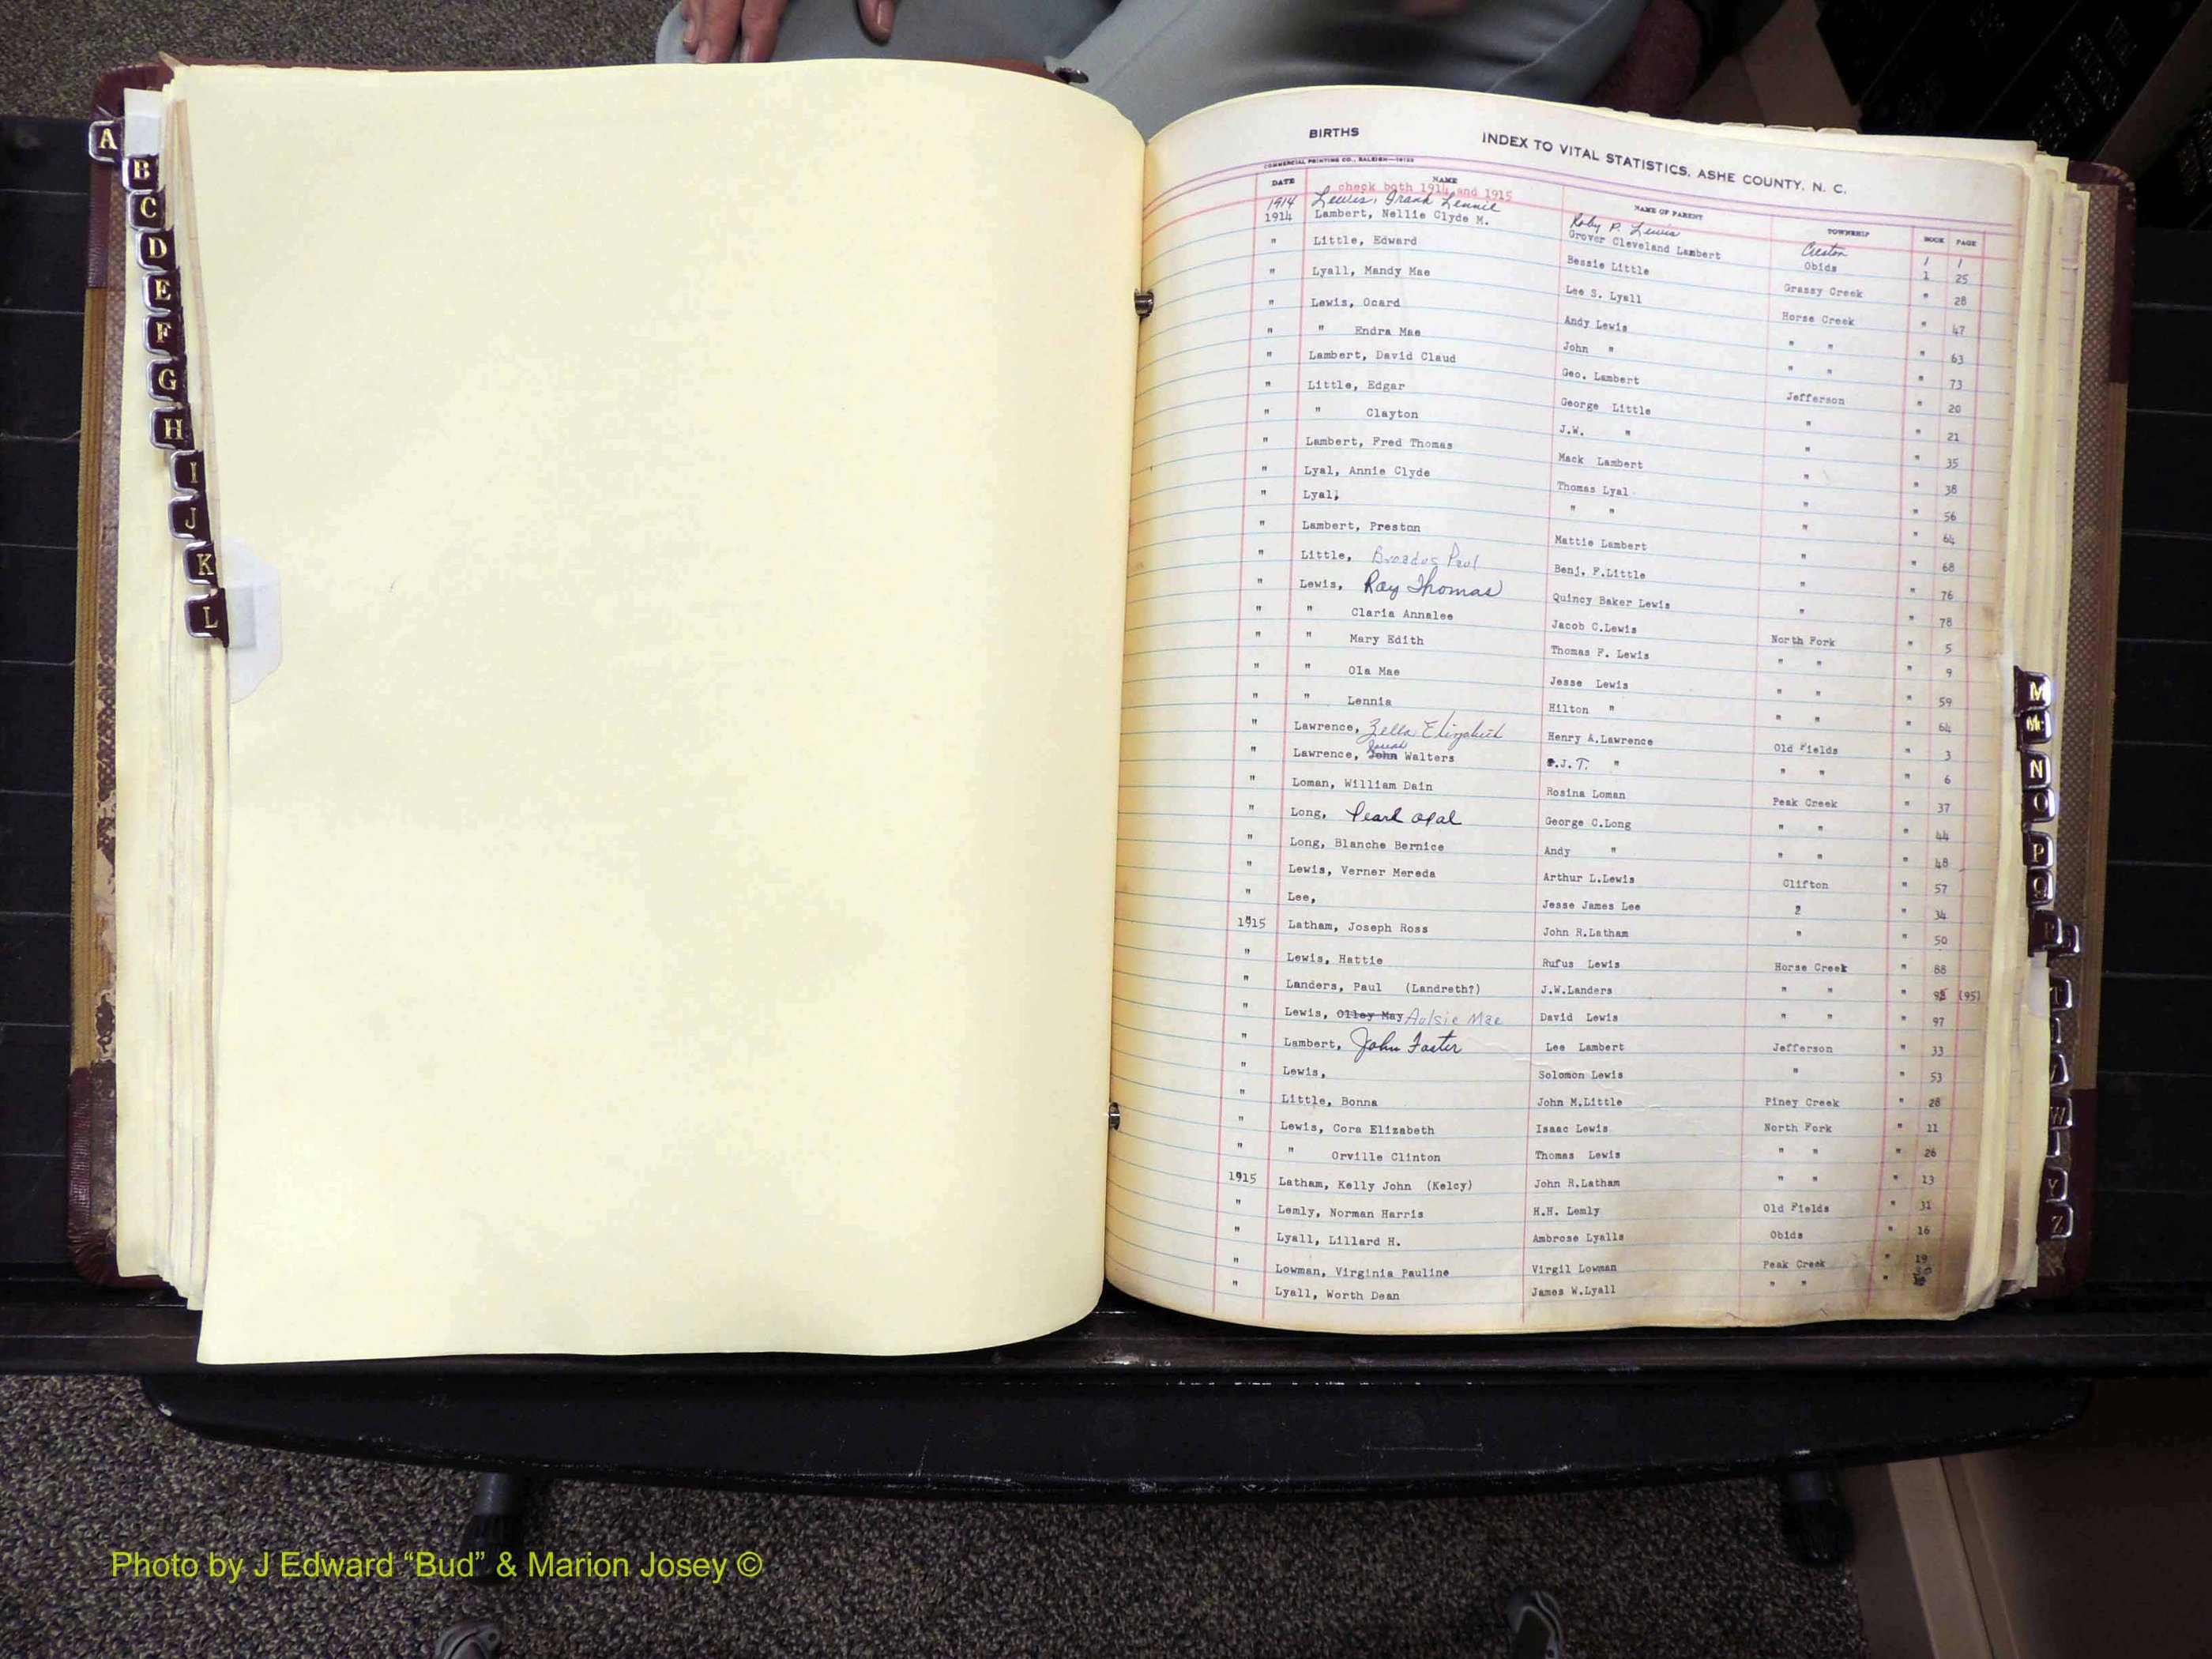 A
B
C
D
E
F
G
H
I
J
K
L
BIRTHS INDEX TO VITAL STATISTICS, ASHE COUNTY, N. C.
COMMERCIAL PRINTING CO., RALEIGH
DATE NAME NAME OF PARENT TOWNSHIP BOOK PAGE
check both 1914 and 1915
1914 Lewis, Grank Lennie Roby P. Lewis Creston 1 1
1914 Lambert, Nellie Clyde M. Grover Cleveland Lambert Obids 1 25
" Little, Edward Bessie Little Grassy Creek " 28
" Lyall, Mandy Mae Lee S. Lyall Horse Creek " 47
" Lewis, Ocard Andy Lewis " " " 63
" " Endra Mae John " " " " 73
" Lambert, David Claud Geo. Lambert Jefferson " 20
" Little, Edgar George Little " " 21
" " Clayton J.W. " " " 35
" Lambert, Fred Thomas Mack Lambert " " 38
" Lyal, Annie Clyde Thomas Lyal " " 56
" Lyal, " " " " 64
" Lambert, Preston Mattie Lambert " " 68
" Little, Broadus Paul Benj. F.Little " " 76
" Lewis, Ray Thomas Quincy Baker Lewis " " 78
" " Claria Annalee Jacob C.Lewis North Fork 5
" " Mary Edith Thomas F. Lewis " " " 9
" " Ola Mae Jesse Lewis " " " 59
" " Lennia Hilton " " " " 64
" Lawrence, Zella Elizabeth Henry A.Lawrence Old Fields " 3
" Lawrence, John Walters .J.T. " " " " 6
" Loman, William Dain Rosina Loman Peak Creek " 37
" Long, Pearl Opal George C.Long " " " 44
" Long, Blanche Bernice Andy " " " " 48
" Lewis, Verner Mereda Arthur L.Lewis Clifton " 57
" Lee, Jesse James Lee 2 " 34
1915 Latham, Joseph Ross John R.Latham " " 50
" Lewis, Hattie Rufus Lewis Horse Creek " 88
" Landers, Paul (Landreth?) J.W.Landers " " " (95)
" Lewis, Olley May Aulsie Mae David Lewis " " " 97
" Lambert, John Foster Lee Lambert Jefferson " 33
" Lewis, Solomon Lewis " " 53
" Little, Bonna John M.Little Piney Creek " 28
" Lewis, Cora Elizabeth Isaac Lewis North Fork " 11
" " Orville Clinton Thomas Lewis " " " 26
1915 Latham, Kelly John (Kelcy) John R.Latham " " " 13
" Lemly, Norman Harris H.H. Lemly Old Fields " 31
" Lyall, Lillard H. Ambrose Lyalls Obids " 16
" Lowman, Virginia Pauline Virgil Lowman Peak Creek " 19
" Lyall, Worth Dean James W.Lyall " " "
M
Mc
N
O
P
Q
R
T
W
Y
Z
Photo by J Edward “Bud” & Marion Josey ©